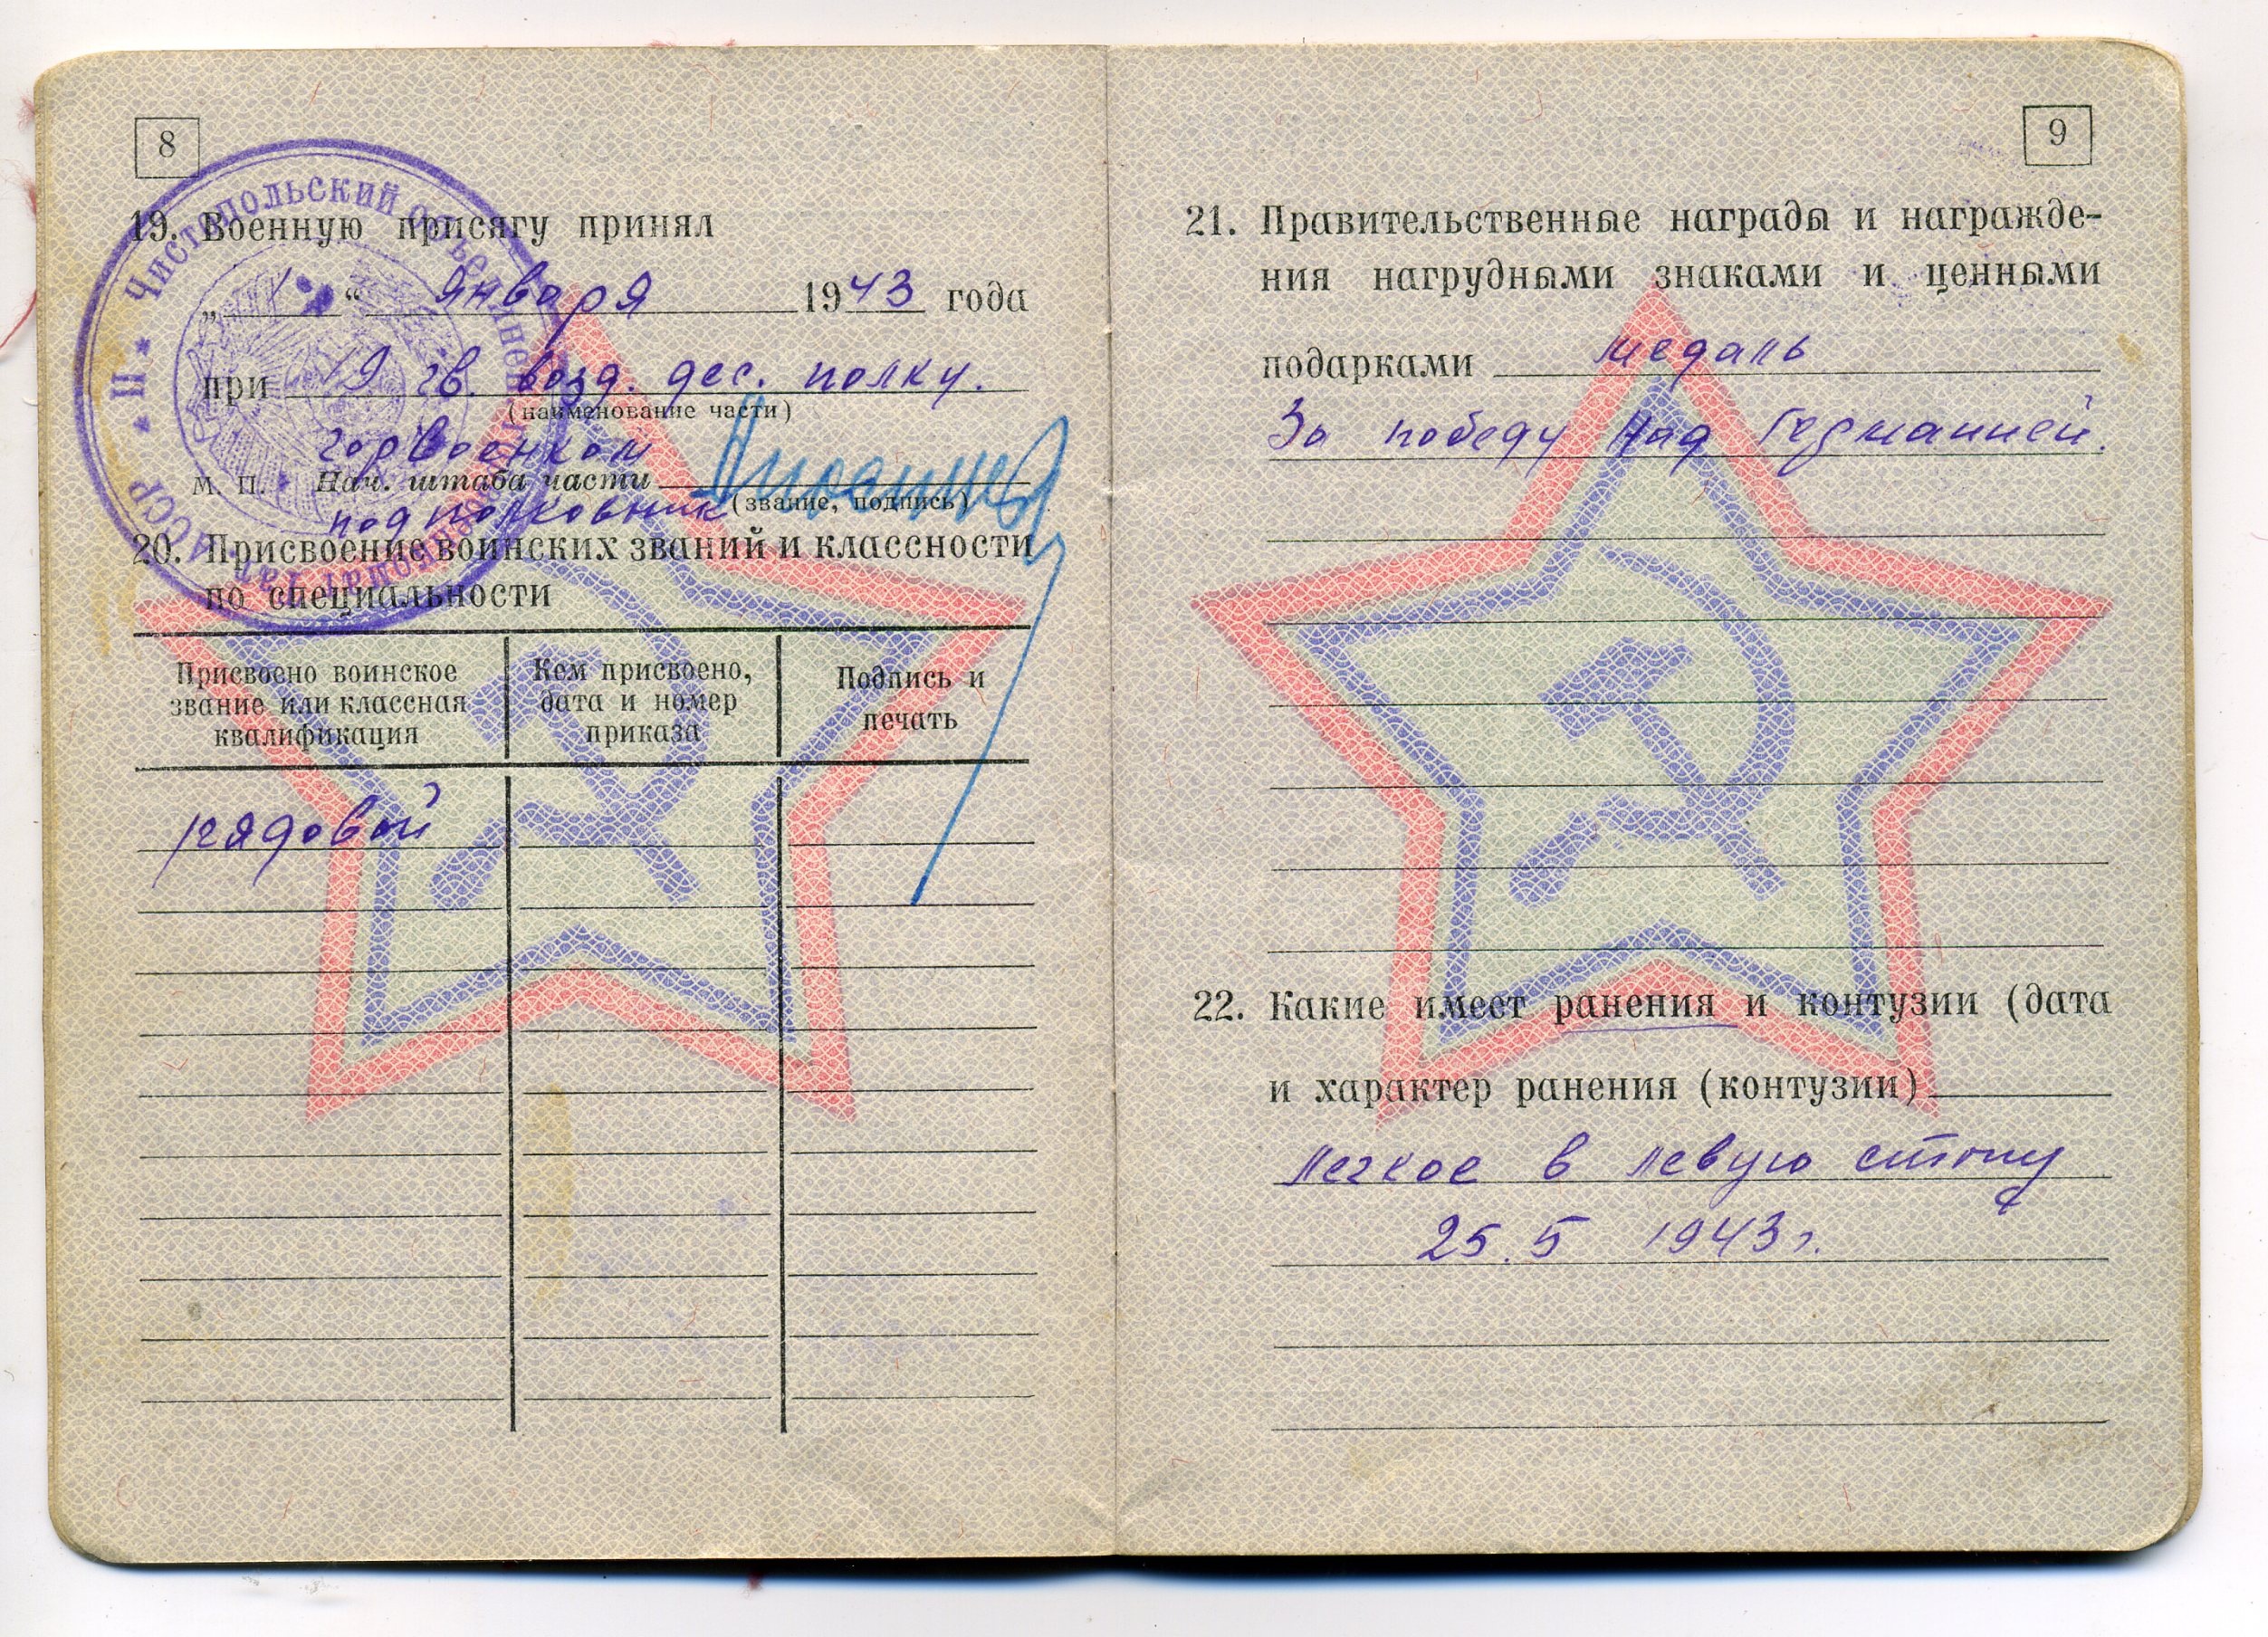 8
19. Военную присягу принял
„ 1 “ января 1943 года
при 19 гв. возд. дес. полку.
(наименование части)
горвоенком
М. П. Нач. штаба части
(звание, подпись)
подполковник
20. Присвоение воинских званий и классности
по специальности
Присвоено воинское звание или классная квалификация
Кем присвоено, дата и номер приказа
Подпись и печать
рядовой
Чистопольский объединен
9
21. Правительственные награды и награжде-
ния нагрудными знаками и ценными
подарками медаль
За победу над Германией.
22. Какие имеет ранения и контузии (дата
и характер ранения (контузии)
легкое в левую стопу
25.5 1943 г.